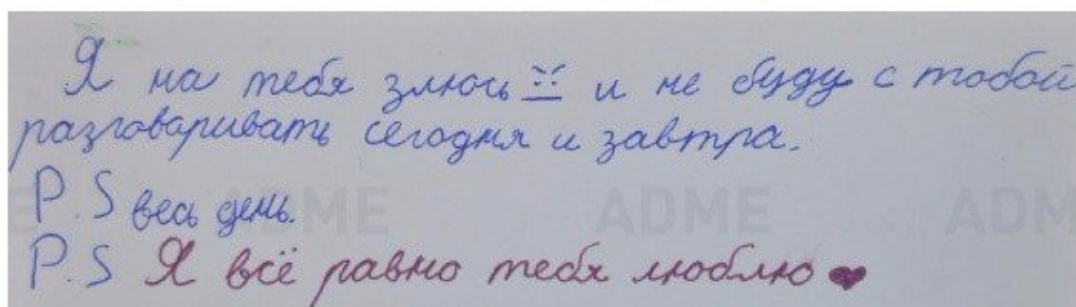 Я на тебя злюсь и не буду с тобой
разговаривать сегодня и завтра.
P.S весь день.
P.S Я всё равно тебя люблю ❤
ADME ADME ADM